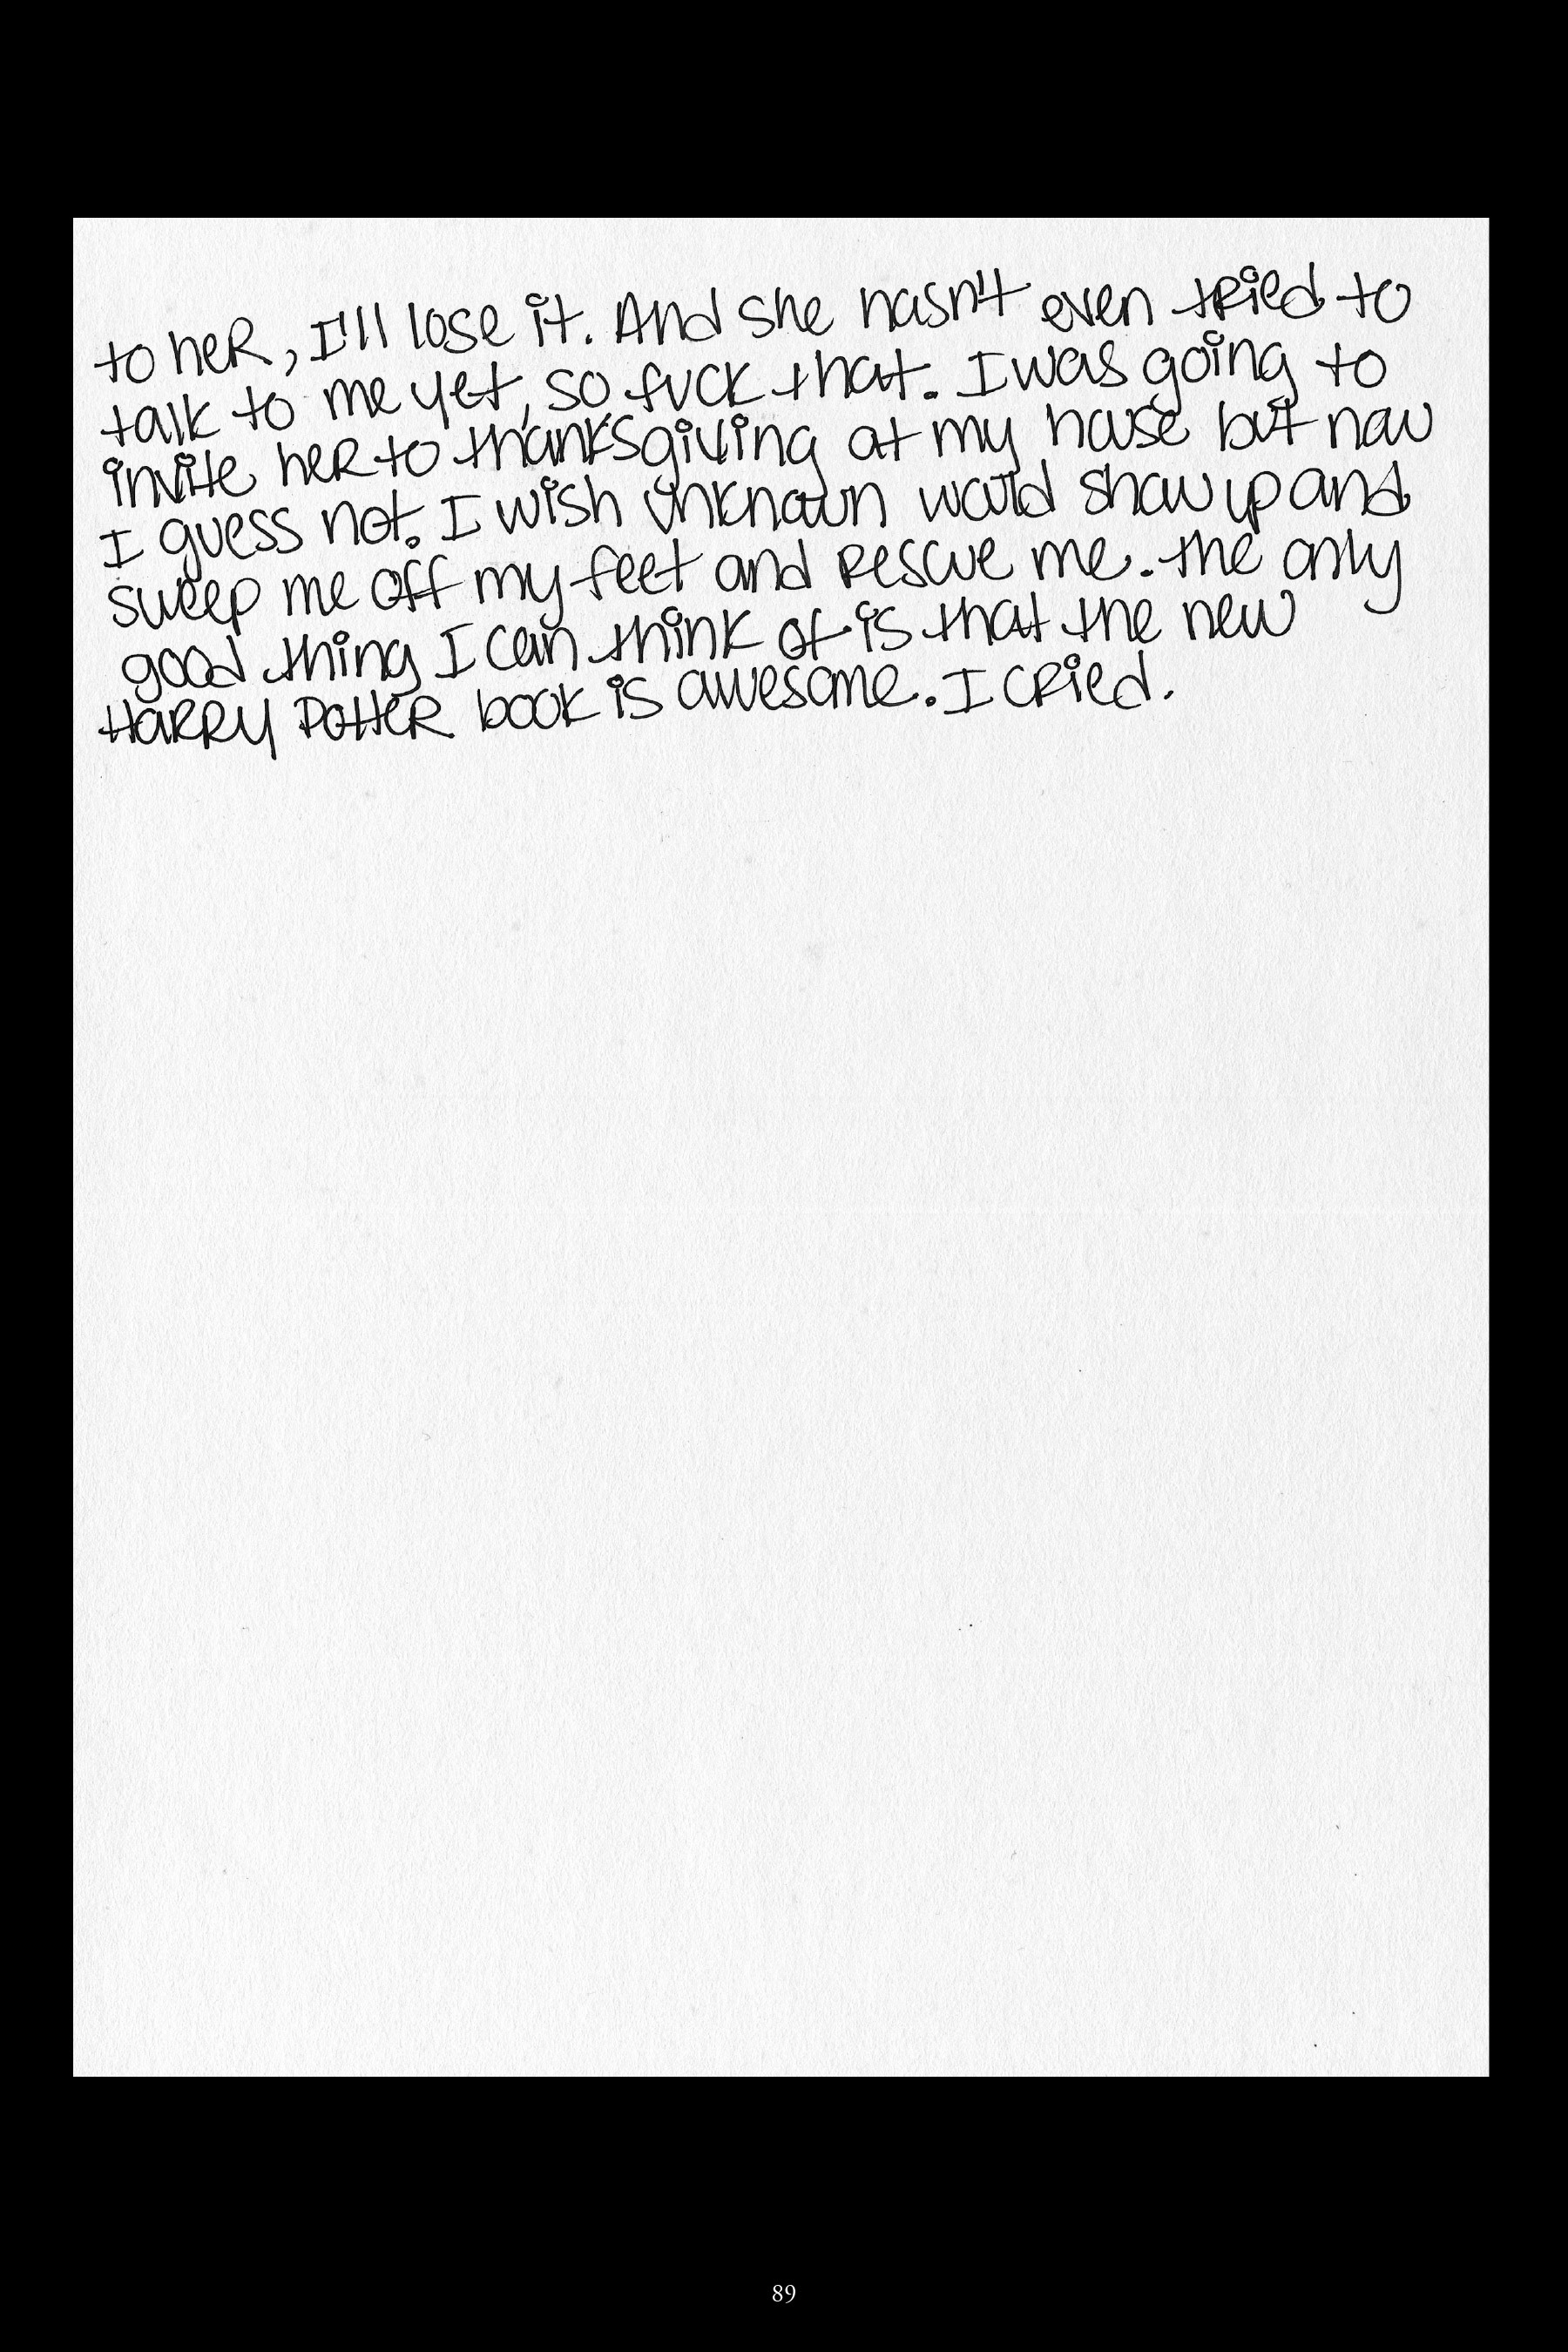 to her, I'll lose it. And she hasn't even tried to
talk to me yet, so fuck that. I was going to
invite her to thanksgiving at my house but now
I guess not. I wish Unknown would show up and
sweep me off my feet and rescue me. the only
good thing I can think of is that the new
HARRY POTTER book is awesome. I cried.
89